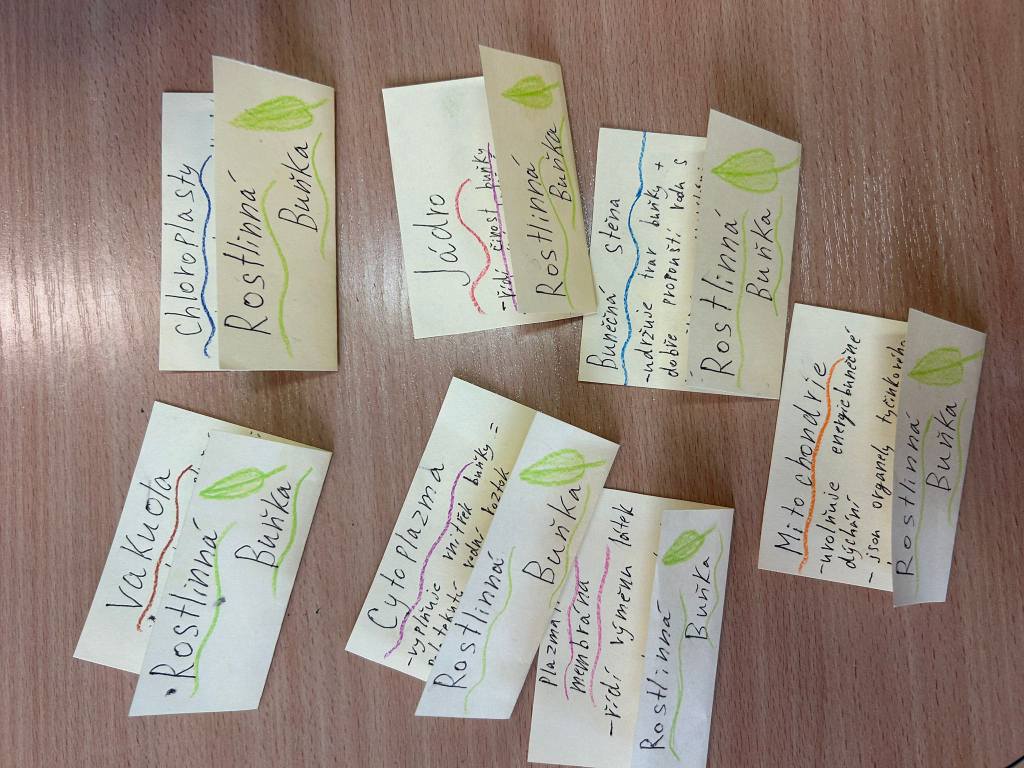 Vakuola
Rostlinná
Buňka
Chloroplasty
Rostlinná
Buňka
Jádro
-řídí činost buňky
Rostlinná
Buňka
Cytoplazma
-vyplňuje vnitřek buňky =
vodný roztok
Rostlinná
Buňka
Buněčná stěna
-udržuje tvar buňky +
dobře propouští vodu s
Rostlinná
Buňka
Plazm.
membrána
-řídí výměnu látek
Rostlinná
Buňka
Mitochondrie
-uvolňuje energie buněčné
dýchání
- jsou organely tyčinkového
Rostlinná
Buňka